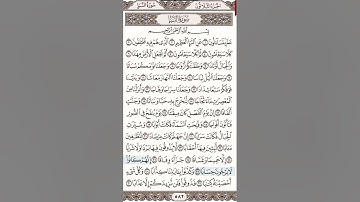 الجزء الثلاثون سورة النبإ
سُورَةُ النَّبَإِ
بِسْمِ اللَّهِ الرَّحْمَٰنِ الرَّحِيمِ
عَمَّ يَتَسَاءَلُونَ ١ عَنِ النَّبَإِ الْعَظِيمِ ٢ الَّذِي هُمْ فِيهِ مُخْتَلِفُونَ ٣
كَلَّا سَيَعْلَمُونَ ٤ ثُمَّ كَلَّا سَيَعْلَمُونَ ٥ أَلَمْ نَجْعَلِ الْأَرْضَ مِهَادًا ٦
وَالْجِبَالَ أَوْتَادًا ٧ وَخَلَقْنَاكُمْ أَزْوَاجًا ٨ وَجَعَلْنَا نَوْمَكُمْ سُبَاتًا ٩
وَجَعَلْنَا اللَّيْلَ لِبَاسًا ١٠ وَجَعَلْنَا النَّهَارَ مَعَاشًا ١١ وَبَنَيْنَا فَوْقَكُمْ
سَبْعًا شِدَادًا ١٢ وَجَعَلْنَا سِرَاجًا وَهَّاجًا ١٣ وَأَنزَلْنَا مِنَ
الْمُعْصِرَاتِ مَاءً ثَجَّاجًا ١٤ لِّنُخْرِجَ بِهِ حَبًّا وَنَبَاتًا ١٥ وَجَنَّاتٍ
أَلْفَافًا ١٦ إِنَّ يَوْمَ الْفَصْلِ كَانَ مِيقَاتًا ١٧ يَوْمَ يُنفَخُ فِي الصُّورِ
فَتَأْتُونَ أَفْوَاجًا ١٨ وَفُتِحَتِ السَّمَاءُ فَكَانَتْ أَبْوَابًا ١٩ وَسُيِّرَتِ
الْجِبَالُ فَكَانَتْ سَرَابًا ٢٠ إِنَّ جَهَنَّمَ كَانَتْ مِرْصَادًا ٢١ لِّلطَّاغِينَ
مَآبًا ٢٢ لَّابِثِينَ فِيهَا أَحْقَابًا ٢٣ لَّا يَذُوقُونَ فِيهَا بَرْدًا وَلَا شَرَابًا ٢٤
إِلَّا حَمِيمًا وَغَسَّاقًا ٢٥ جَزَاءً وِفَاقًا ٢٦ إِنَّهُمْ كَانُوا
لَا يَرْجُونَ حِسَابًا ٢٧ وَكَذَّبُوا بِآيَاتِنَا كِذَّابًا ٢٨ وَكُلَّ شَيْءٍ
أَحْصَيْنَاهُ كِتَابًا ٢٩ فَذُوقُوا فَلَن نَّزِيدَكُمْ إِلَّا عَذَابًا ٣٠
٥٨٢